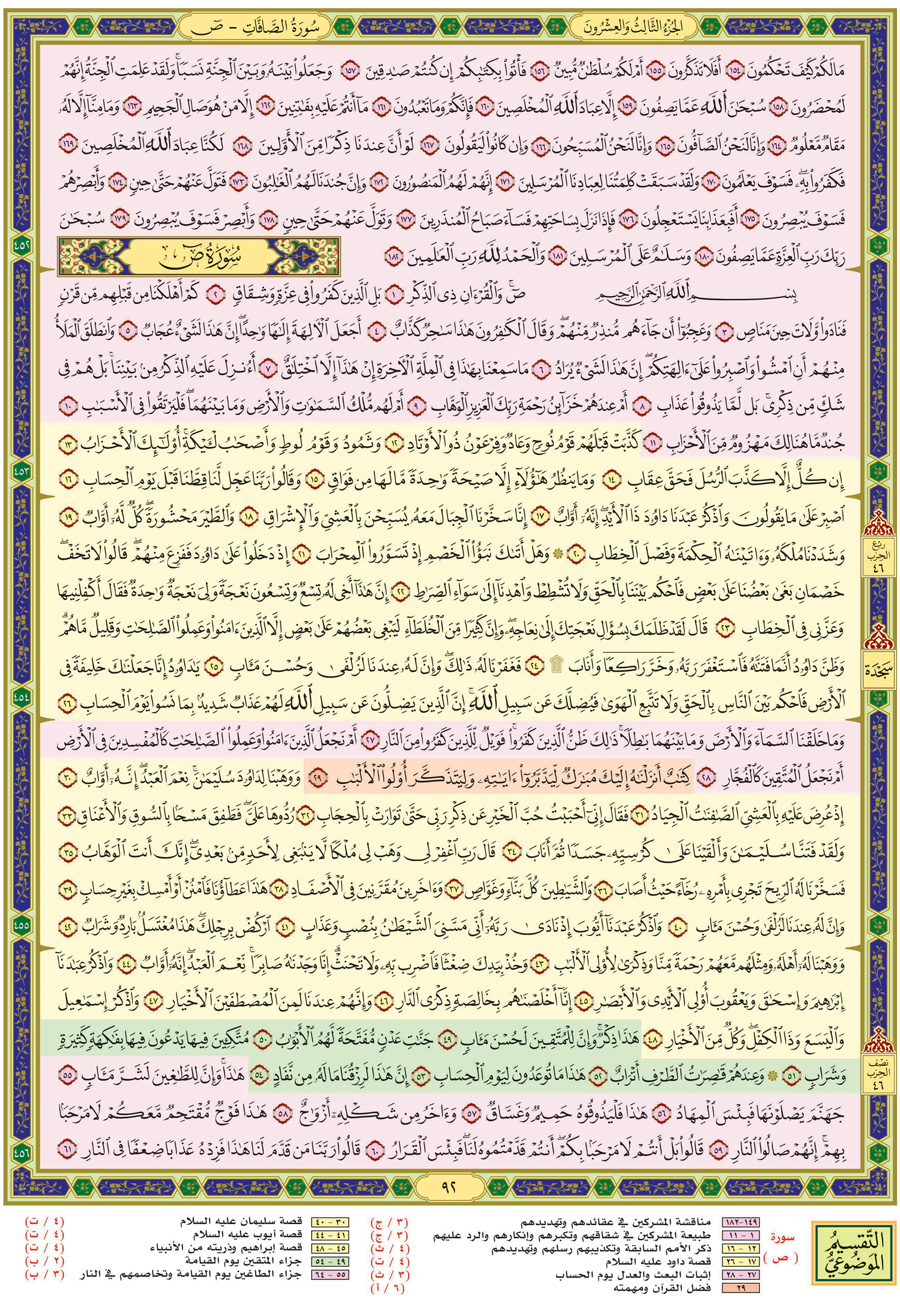 الجزء الثالث والعشرون
سورة الصافات - ص
مالكم كيف تحكمون ١٥٤ أفلا تذكرون ١٥٥ أم لكم سلطٰن مبين ١٥٦ فأتوا بكتٰبكم إن كنتم صٰدقين ١٥٧ وجعلوا بينه وبين الجنة نسبا ولقد علمت الجنة إنهم
لمحضرون ١٥٨ سبحٰن الله عما يصفون ١٥٩ إلا عباد الله المخلصين ١٦٠ فإنكم وما تعبدون ١٦١ ما أنتم عليه بفٰتنين ١٦٢ إلا من هو صال الجحيم ١٦٣ وما منا إلا له
مقام معلوم ١٦٤ وإنا لنحن الصافون ١٦٥ وإنا لنحن المسبحون ١٦٦ وإن كانوا ليقولون ١٦٧ لو أن عندنا ذكرا من الأولين ١٦٨ لكنا عباد الله المخلصين ١٦٩
فكفروا به فسوف يعلمون ١٧٠ ولقد سبقت كلمتنا لعبادنا المرسلين ١٧١ إنهم لهم المنصورون ١٧٢ وإن جندنا لهم الغٰلبون ١٧٣ فتول عنهم حتى حين ١٧٤ وأبصرهم
فسوف يبصرون ١٧٥ أفبعذابنا يستعجلون ١٧٦ فإذا نزل بساحتهم فساء صباح المنذرين ١٧٧ وتول عنهم حتى حين ١٧٨ وأبصر فسوف يبصرون ١٧٩ سبحٰن
ربك رب العزة عما يصفون ١٨٠ وسلٰم على المرسلين ١٨١ والحمد لله رب العٰلمين ١٨٢
سورة ص
بسم الله الرحمٰن الرحيم ص والقرءان ذي الذكر ١ بل الذين كفروا في عزة وشقاق ٢ كم أهلكنا من قبلهم من قرن
فنادوا ولات حين مناص ٣ وعجبوا أن جاءهم منذر منهم وقال الكٰفرون هٰذا سٰحر كذاب ٤ أجعل الآلهة إلٰها وٰحدا إن هٰذا لشيء عجاب ٥ وانطلق الملأ
منهم أن امشوا واصبروا على ءالهتكم إن هٰذا لشيء يراد ٦ ما سمعنا بهٰذا في الملة الآخرة إن هٰذا إلا اختلٰق ٧ أءنزل عليه الذكر من بيننا بل هم في
شك من ذكري بل لما يذوقوا عذاب ٨ أم عندهم خزائن رحمة ربك العزيز الوهاب ٩ أم لهم ملك السمٰوٰت والأرض وما بينهما فليرتقوا في الأسبٰب ١٠
جند ما هنالك مهزوم من الأحزاب ١١ كذبت قبلهم قوم نوح وعاد وفرعون ذو الأوتاد ١٢ وثمود وقوم لوط وأصحٰب لـيكة أولٰئك الأحزاب ١٣
إن كل إلا كذب الرسل فحق عقاب ١٤ وما ينظر هٰؤلاء إلا صيحة وٰحدة ما لها من فواق ١٥ وقالوا ربنا عجل لنا قطنا قبل يوم الحساب ١٦
اصبر على ما يقولون واذكر عبدنا داوۥد ذا الأيد إنه أواب ١٧ إنا سخرنا الجبال معه يسبحن بالعشي والإشراق ١٨ والطير محشورة كل له أواب ١٩
وشددنا ملكه وءاتينٰه الحكمة وفصل الخطاب ٢٠ ۞ وهل أتىٰك نبؤا الخصم إذ تسوروا المحراب ٢١ إذ دخلوا على داوۥد ففزع منهم قالوا لا تخف
خصمان بغى بعضنا على بعض فاحكم بيننا بالحق ولا تشطط واهدنا إلى سواء الصرٰط ٢٢ إن هٰذا أخي له تسع وتسعون نعجة ولي نعجة وٰحدة فقال أكفلنيها
وعزني في الخطاب ٢٣ قال لقد ظلمك بسؤال نعجتك إلى نعاجه وإن كثيرا من الخلطاء ليبغي بعضهم على بعض إلا الذين ءامنوا وعملوا الصٰلحٰت وقليل ما هم
وظن داوۥد أنما فتنٰه فاستغفر ربه وخر راكعا وأناب ۩ ٢٤ فغفرنا له ذٰلك وإن له عندنا لزلفى وحسن مـٔاب ٢٥ يٰداوۥد إنا جعلنٰك خليفة في
الأرض فاحكم بين الناس بالحق ولا تتبع الهوى فيضلك عن سبيل الله إن الذين يضلون عن سبيل الله لهم عذاب شديد بما نسوا يوم الحساب ٢٦
وما خلقنا السماء والأرض وما بينهما بٰطلا ذٰلك ظن الذين كفروا فويل للذين كفروا من النار ٢٧ أم نجعل الذين ءامنوا وعملوا الصٰلحٰت كالمفسدين في الأرض
أم نجعل المتقين كالفجار ٢٨ كتٰب أنزلنٰه إليك مبٰرك ليدبروا ءايٰته وليتذكر أولوا الألبٰب ٢٩ ووهبنا لداوۥد سليمٰن نعم العبد إنه أواب ٣٠
إذ عرض عليه بالعشي الصٰفنٰت الجياد ٣١ فقال إني أحببت حب الخير عن ذكر ربي حتى توارت بالحجاب ٣٢ ردوها علي فطفق مسحا بالسوق والأعناق ٣٣
ولقد فتنا سليمٰن وألقينا على كرسيه جسدا ثم أناب ٣٤ قال رب اغفر لي وهب لي ملكا لا ينبغي لأحد من بعدي إنك أنت الوهاب ٣٥
فسخرنا له الريح تجري بأمره رخاء حيث أصاب ٣٦ والشيٰطين كل بناء وغواص ٣٧ وءاخرين مقرنين في الأصفاد ٣٨ هٰذا عطاؤنا فامنن أو أمسك بغير حساب ٣٩
وإن له عندنا لزلفى وحسن مـٔاب ٤٠ واذكر عبدنا أيوب إذ نادى ربه أني مسني الشيطٰن بنصب وعذاب ٤١ اركض برجلك هٰذا مغتسل بارد وشراب ٤٢
ووهبنا له أهله ومثلهم معهم رحمة منا وذكرى لأولي الألبٰب ٤٣ وخذ بيدك ضغثا فاضرب به ولا تحنث إنا وجدنٰه صابرا نعم العبد إنه أواب ٤٤ واذكر عبٰدنا
إبرٰهيم وإسحٰق ويعقوب أولي الأيدي والأبصٰر ٤٥ إنا أخلصنٰهم بخالصة ذكرى الدار ٤٦ وإنهم عندنا لمن المصطفين الأخيار ٤٧ واذكر إسمٰعيل
واليسع وذا الكفل وكل من الأخيار ٤٨ هٰذا ذكر وإن للمتقين لحسن مـٔاب ٤٩ جنٰت عدن مفتحة لهم الأبوٰب ٥٠ متكـٔين فيها يدعون فيها بفٰكهة كثيرة
وشراب ٥١ ۞ وعندهم قٰصرٰت الطرف أتراب ٥٢ هٰذا ما توعدون ليوم الحساب ٥٣ إن هٰذا لرزقنا ما له من نفاد ٥٤ هٰذا وإن للطٰغين لشر مـٔاب ٥٥
جهنم يصلونها فبئس المهاد ٥٦ هٰذا فليذوقوه حميم وغساق ٥٧ وءاخر من شكله أزوٰج ٥٨ هٰذا فوج مقتحم معكم لا مرحبا
بهم إنهم صالوا النار ٥٩ قالوا بل أنتم لا مرحبا بكم أنتم قدمتموه لنا فبئس القرار ٦٠ قالوا ربنا من قدم لنا هٰذا فزده عذابا ضعفا في النار ٦١
ربع الحزب ٤٦
سجدة
نصف الحزب ٤٦
٤٥٢
٤٥٣
٤٥٤
٤٥٥
٤٥٦
٩٢
التقسيم الموضوعي
سورة (ص)
١٤٩-١٨٢ مناقشة المشركين في عقائدهم وتهديدهم (٣ / ج)
١ - ١١ طبيعة المشركين في شقاقهم وتكبرهم وإنكارهم والرد عليهم (٣ / ج)
١٢ - ١٦ ذكر الأمم السابقة وتكذيبهم رسلهم وتهديدهم (٤ / ث)
١٧ - ٢٦ قصة داود عليه السلام (٤ / ت)
٢٧ - ٢٨ إثبات البعث والعدل يوم الحساب (٣ / ث)
٢٩ فضل القرآن ومهمته (٦ / أ)
٣٠ - ٤٠ قصة سليمان عليه السلام (٤ / ت)
٤١ - ٤٤ قصة أيوب عليه السلام (٤ / ت)
٤٥ - ٤٨ قصة إبراهيم وذريته من الأنبياء (٤ / ت)
٤٩ - ٥٤ جزاء المتقين يوم القيامة (٢ / ب)
٥٥ - ٦٤ جزاء الطاغين يوم القيامة وتخاصمهم في النار (٣ / ب)